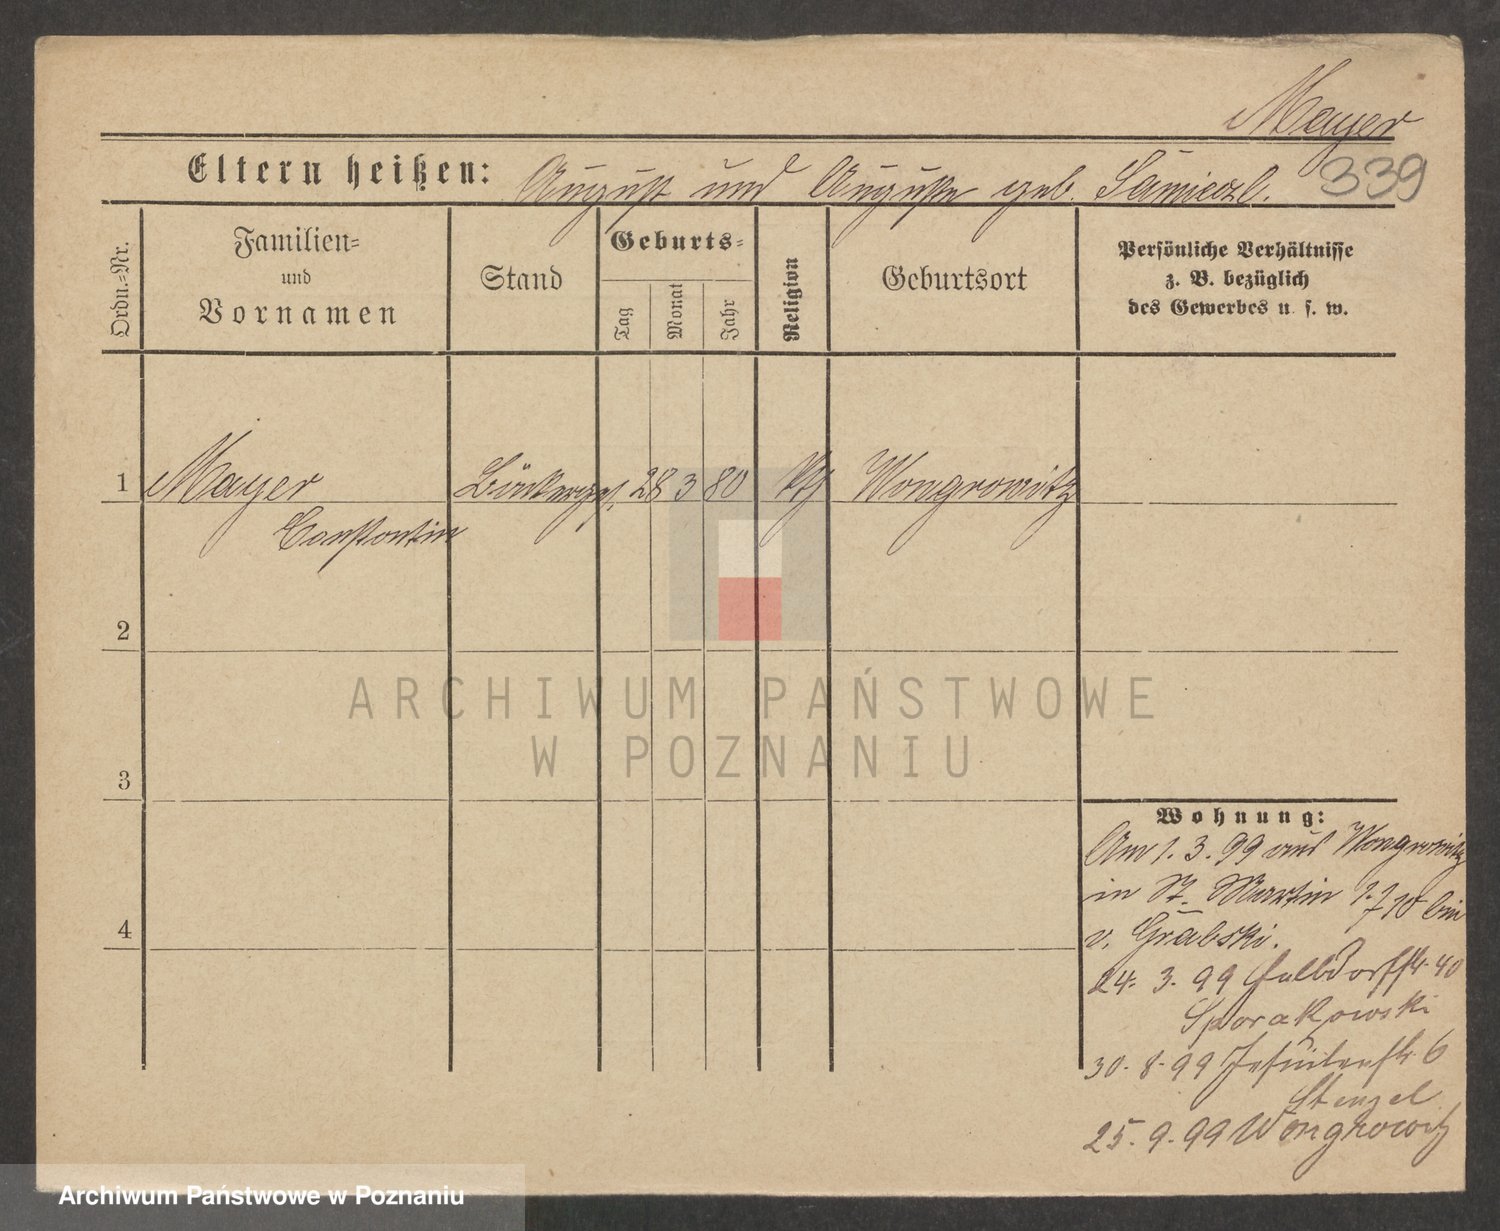 Mayer
339
Eltern heißen: August und Auguste geb.
Ordn.=Nr.
Familien=
und
Vornamen
Stand
Geburts=
Tag
Monat
Jahr
Religion
Geburtsort
Persönliche Verhältnisse
z. B. bezüglich
des Gewerbes u. s. w.
1 Mayer Bäckerges. 28 3 80 kth Wongrowitz
Constantin
2
3
4
ARCHIWUM PAŃSTWOWE
W POZNANIU
Wohnung:
Am 1. 3. 99 aus Wongrowitz
in St. Martin bei
v. Grabski.
24. 3. 99 Halbdorfstr 40
Sporakowski
30. 8. 99 Jesuitenstr 6
Stenzel
25. 9. 99 Wongrowitz
Archiwum Państwowe w Poznaniu